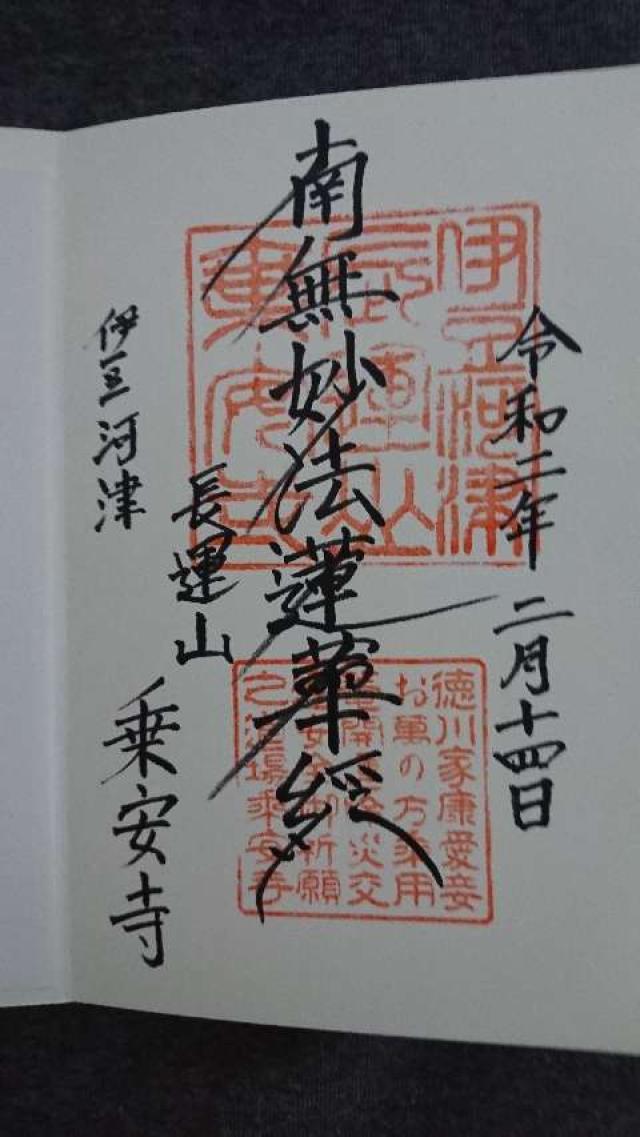 令和二年 二月十四日
南無妙法蓮華經
長運山
乗安寺
伊豆河津
伊豆河津
長運山
乗安寺
徳川家康愛妾
お萬の方乗用
開 災交
安全御祈願
之道場乗安寺